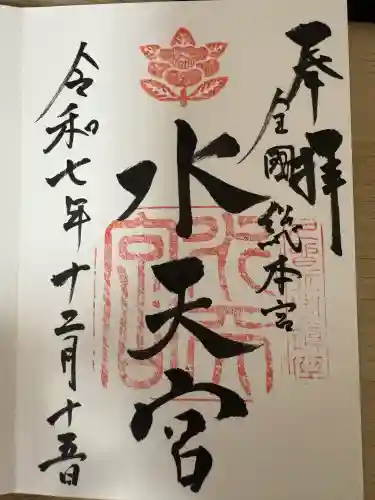 奉拝
全國総本宮
水天宮
水天宮
令和七年十二月十五日